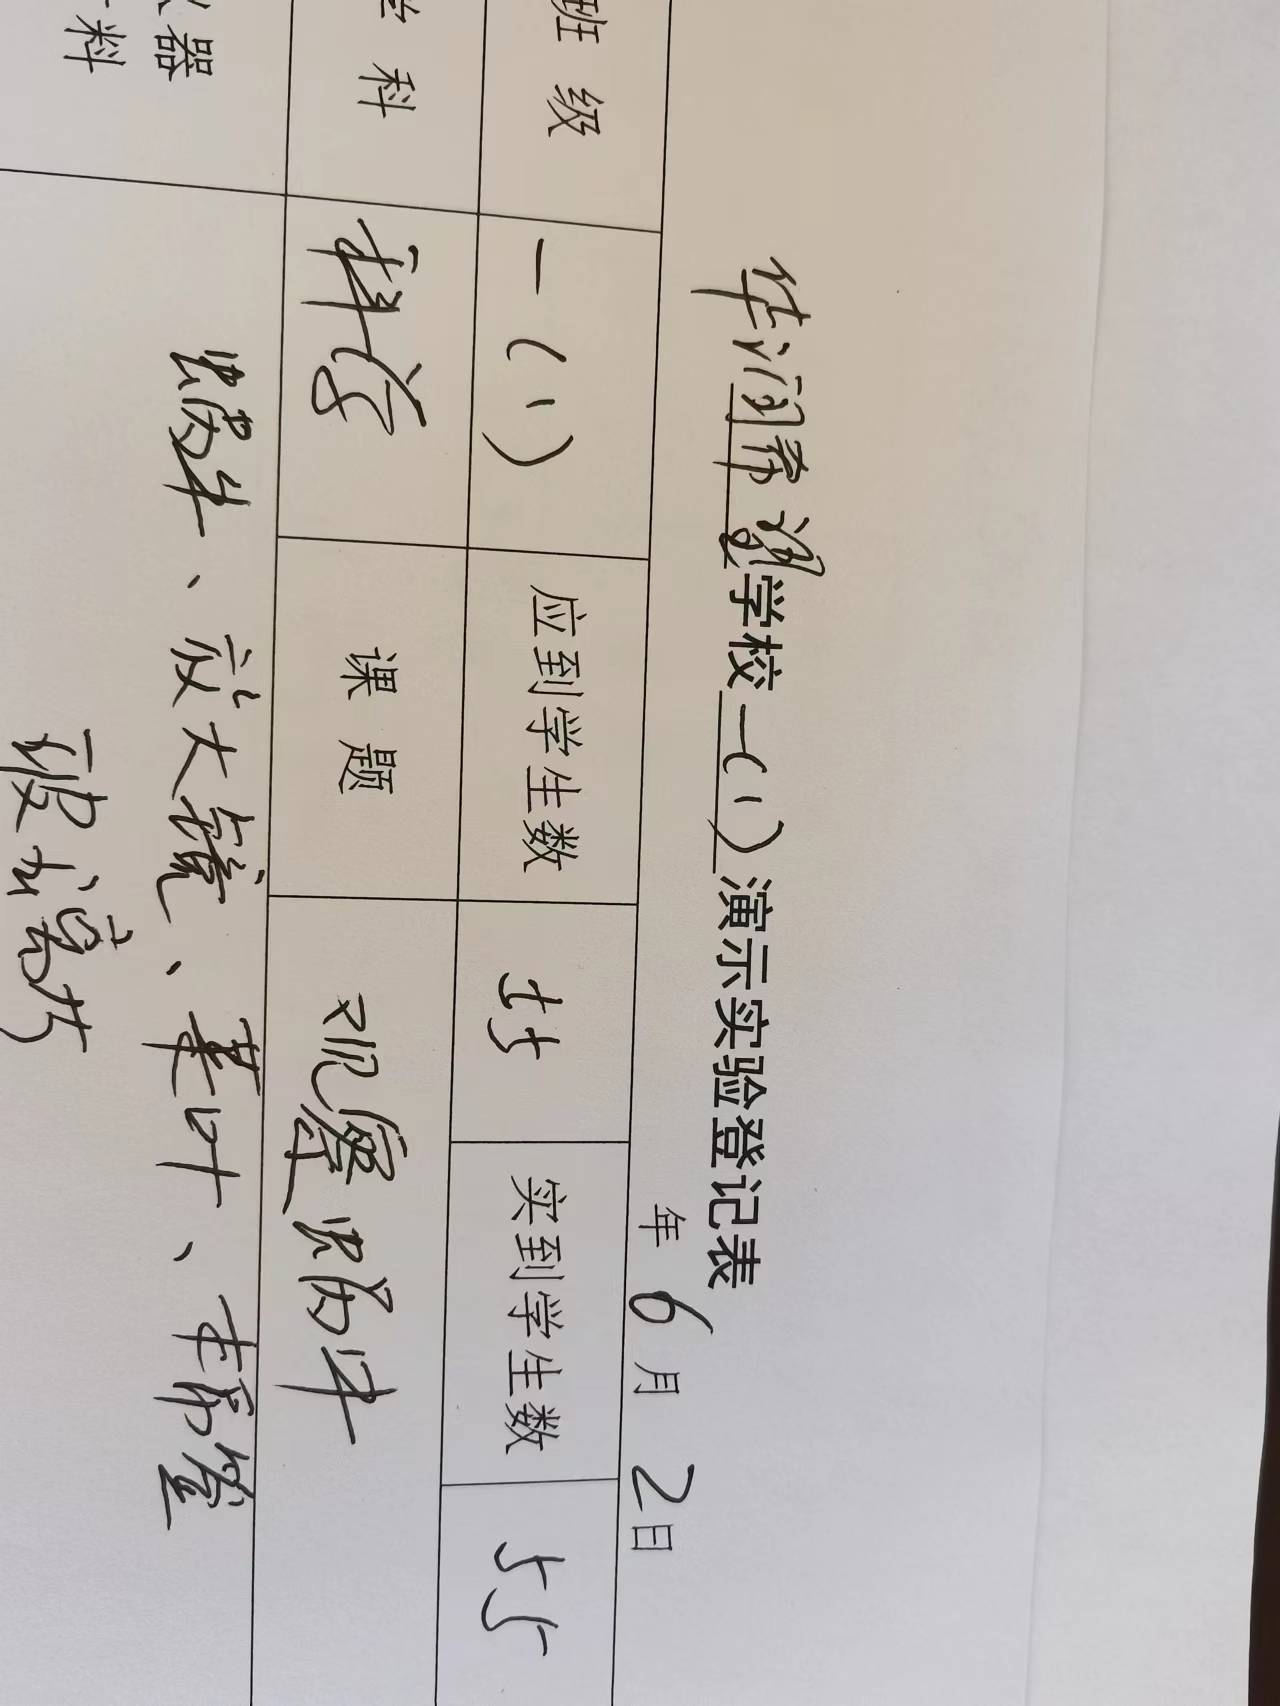 华润希望学校一(1)演示实验登记表
年 6 月 2 日
班 级 一(1) 应到学生数 55 实到学生数 55
学 科 科学 课 题 观察蜗牛
器 蜗牛、放大镜、菜叶、吸管
料 玻璃片